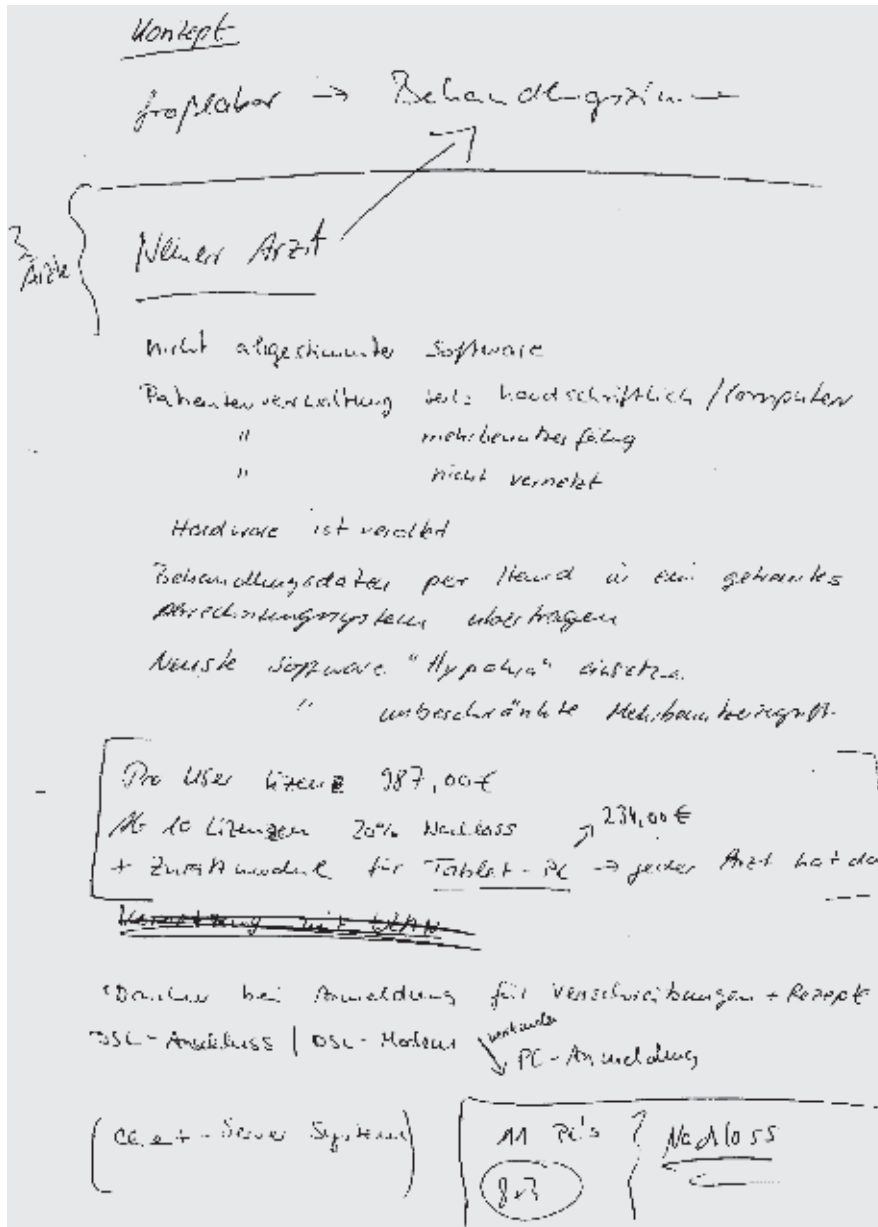 Konzept
Großlabor → Behandlungszimmer
3 Ärzte
Arzt
nicht abgestimmte Software
Patientenverwaltung teils handschriftlich / Computer
" mehrbenutzerfähig
" nicht vernetzt
Hardware ist veraltet
Behandlungsdaten per Hand in ein getrenntes
Abrechnungssystem übertragen
Neuste Software "Hypokra" einsetzen
" unbeschränkte Mehrbenutzerzugriff
Pro User Lizenz 987,00 €
Ab 10 Lizenzen 20% Nachlass 234,00 €
+ Zusatzmodul für Tablet-PC → jeder Arzt hat da
Vernetzung mit WLAN
Drucker bei Anmeldung für Verschreibungen + Rezept
DSL-Anschluss | DSL-Modem vorhanden
PC-Anmeldung
(Client-Server System)
11 PC's Nachlass
8+3